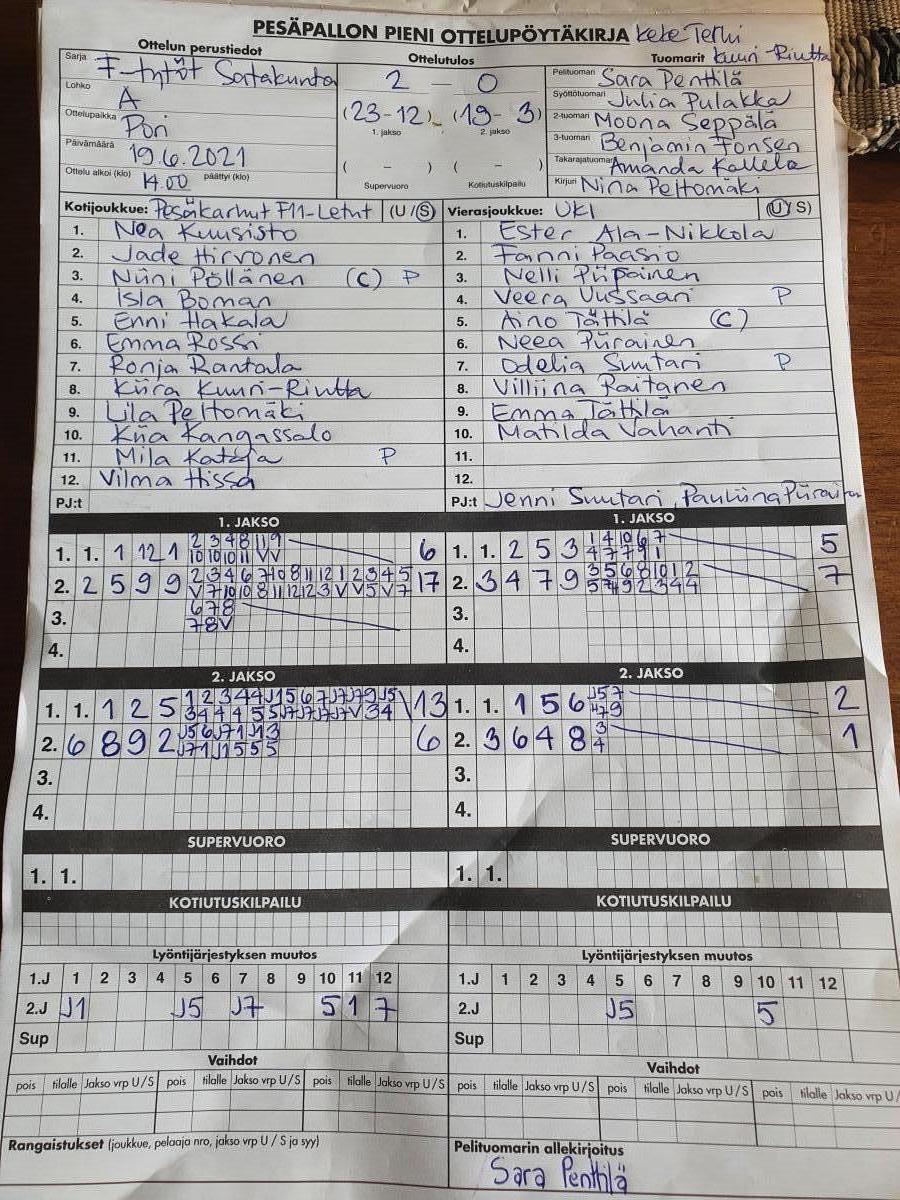 PESÄPALLON PIENI OTTELUPÖYTÄKIRJA Keke Terhi
Ottelun perustiedot Ottelutulos Tuomarit Kuuri-Riutta
Sarja F-tytöt Satakunta
Lohko A
Ottelupaikka Pori
Päivämäärä 19.6.2021
Ottelu alkoi (klo) 14.00 päättyi (klo)
2 - 0
(23-12) (19-3)
1. jakso 2. jakso
( - ) ( - )
Supervuoro Kotiutuskilpailu
Pelituomari Sara Penttilä
Syöttötuomari Julia Pulakka
2-tuomari Moona Seppälä
3-tuomari Benjamin Jonsen
Takarajatuomari Amanda Kallela
Kirjuri Nina Peltomäki
Kotijoukkue: Pesäkarhut F11-Letut (U/S)
1. Nea Kuusisto
2. Jade Hirvonen
3. Niini Pöllänen (C) P
4. Isla Boman
5. Enni Hakala
6. Emma Rossi
7. Ronja Rantala
8. Kiira Kuuri-Riutta
9. Lila Peltomäki
10. Kiia Kangassalo
11. Mila Kataja P
12. Vilma Hissa
PJ:t
Vierasjoukkue: UKI (U/S)
1. Ester Ala-Nikkola
2. Fanni Paasio
3. Nelli Piipainen
4. Veera Uussaari P
5. Aino Tättilä (C)
6. Neea Piirainen
7. Odelia Suutari P
8. Villiina Raitanen
9. Emma Tättilä
10. Matilda Vahanti
11.
12.
PJ:t Jenni Suutari, Pauliina Piirainen
1. JAKSO
1. 1. 1 12 1 2 3 4 8 11 9 6
10 10 10 11 V V
2. 2 5 9 9 2 3 4 6 7 10 8 11 12 1 2 3 4 5 17
V 7 10 10 8 11 12 12 3 V V 5 V 7
3. 6 7 8
7 8 V
4.
1. JAKSO
1. 1. 2 5 3 1 4 10 6 7 5
4 7 7 9 1
2. 3 4 7 9 3 5 6 8 10 1 2 7
3.
4.
2. JAKSO
1. 1. 1 2 5 1 2 3 4 4 J1 5 6 7 J7 J7 9 J5 13
2. 6 8 9 2 J5 6 J7 1 J1 3 6
J7 1 J1 5 5 5
3.
4.
2. JAKSO
1. 1. 1 5 6 J5 7 2
2. 3 6 4 8 3 1
4
3.
4.
SUPERVUORO
1. 1.
SUPERVUORO
1. 1.
KOTIUTUSKILPAILU
KOTIUTUSKILPAILU
Lyöntijärjestyksen muutos
1.J 1 2 3 4 5 6 7 8 9 10 11 12
2.J J1 J5 J7 5 1 7
Sup
Lyöntijärjestyksen muutos
1.J 1 2 3 4 5 6 7 8 9 10 11 12
2.J J5 5
Sup
Vaihdot
pois tilalle Jakso vrp U/S pois tilalle Jakso vrp U/S pois tilalle Jakso vrp U/S
Vaihdot
pois tilalle Jakso vrp U/S pois tilalle Jakso vrp U/S pois tilalle Jakso vrp U/
Rangaistukset (joukkue, pelaaja nro, jakso vrp U / S ja syy)
Pelituomarin allekirjoitus
Sara Penttilä